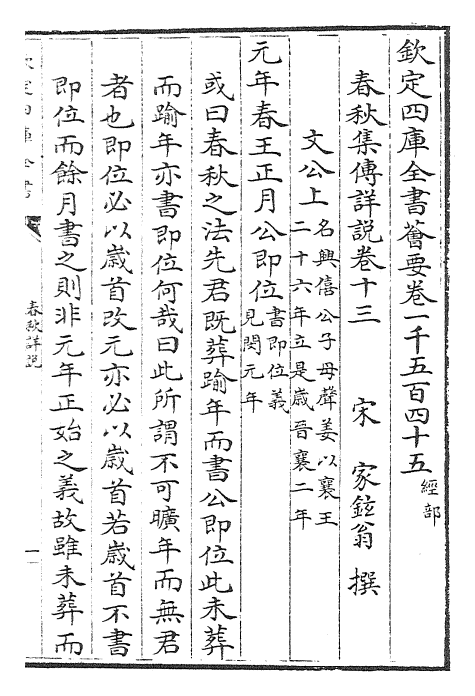 欽定四庫全書薈要卷一千五百四十五 經部
春秋集傳詳說卷十三 宋 家鉉翁 撰
文公上 名興僖公子母聲姜以襄王二十六年立是歲晉襄二年
元年春王正月公即位 書即位義見閔元年
或曰春秋之法先君既葬踰年而書公即位此未葬
而踰年亦書即位何哉曰此所謂不可曠年而無君
者也即位必以歲首改元亦必以歲首若歲首不書
即位而餘月書之則非元年正始之義故雖未葬而
欽定四庫全書
春秋詳說
一